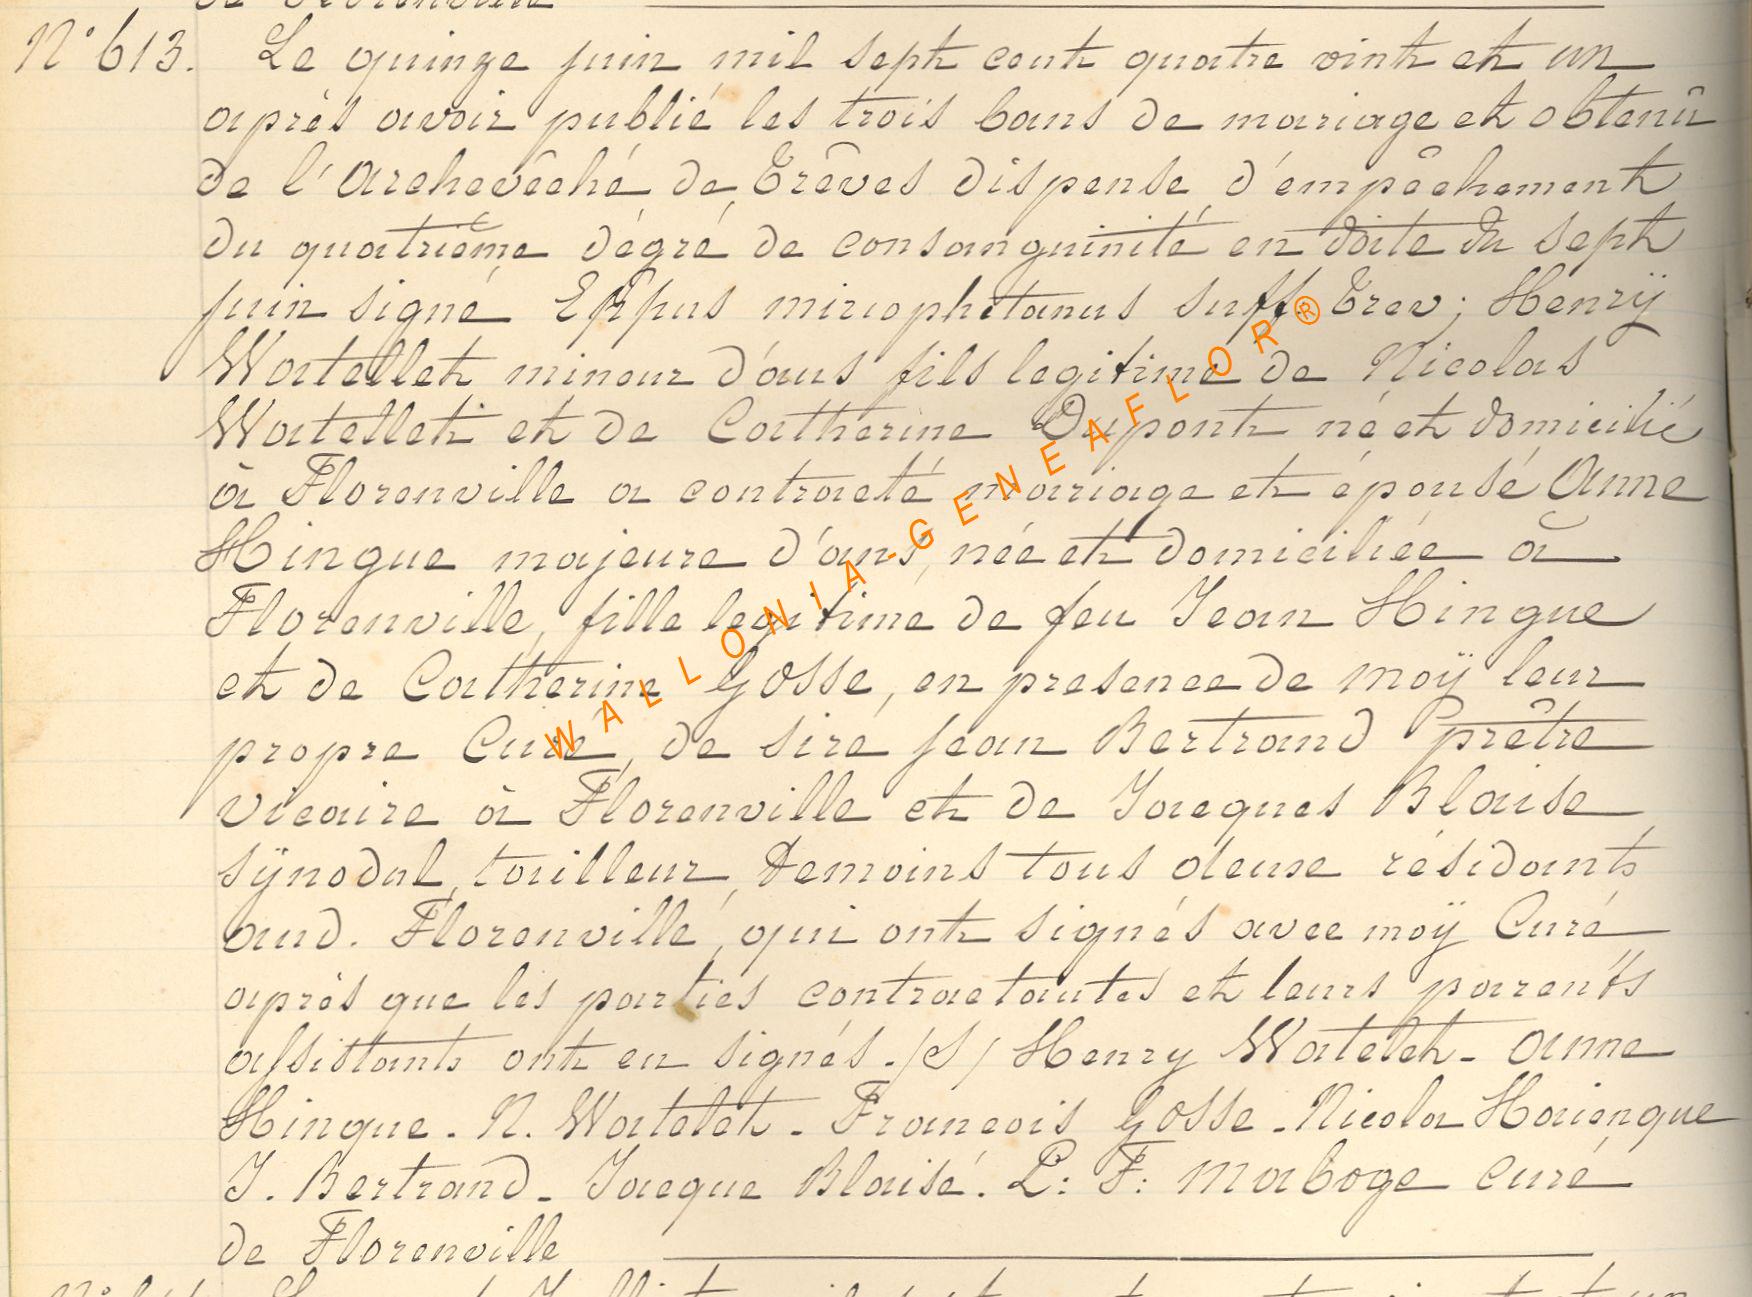 de Florenville
N° 613. Le quinze juin mil sept cent quatre vint et un
après avoir publié les trois bans de mariage et obtenû
de l'Archevêché de Trêves dispense d'empêchement
du quatrième dégré de consanguinité en date du sept
juin signé Eppus miriophitanus suff. Trev; Henrÿ
Watellet mineur d'ans fils legitime de Nicolas
Watellet et de Catherine Dupont né et domicilié
à Florenville a contracté mariage et épousé Anne
Hingue majeure d'ans, née et domiciliée à
Florenville, fille legitime de feu Jean Hingue
et de Catherine Gosse, en presence de moÿ leur
propre Curé, de sire Jean Bertrand Prêtre
vicaire à Florenville et de Jacques Blaise
sÿnodal, tailleur, Temoins tous deux résidants
aud. Florenville, qui ont signés avec moÿ Curé
après que les parties contractantes et leurs parents
assistants ont eu signés. /S/ Henry Watelet - Anne
Hingue. N. Watelet - Francois Gosse - Nicola Haiengue
J. Bertrand - Jacque Blaisé. P: F: Maboge curé
de Florenville
WALLONIA-GENEAFLOR®